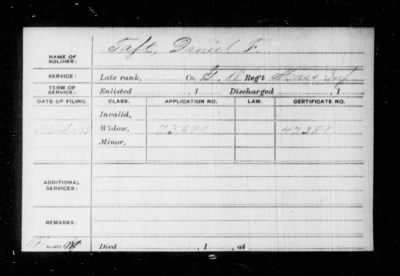 NAME OF SOLDIER: Taft, Daniel F.
SERVICE: Late rank, Co. G, Reg't Mass Inf
TERM OF SERVICE: Enlisted , 1 Discharged , 1
DATE OF FILING. CLASS. APPLICATION NO. LAW. CERTIFICATE NO.
Invalid,
Widow,
Minor,
ADDITIONAL SERVICES:
REMARKS:
Died , 1 , at